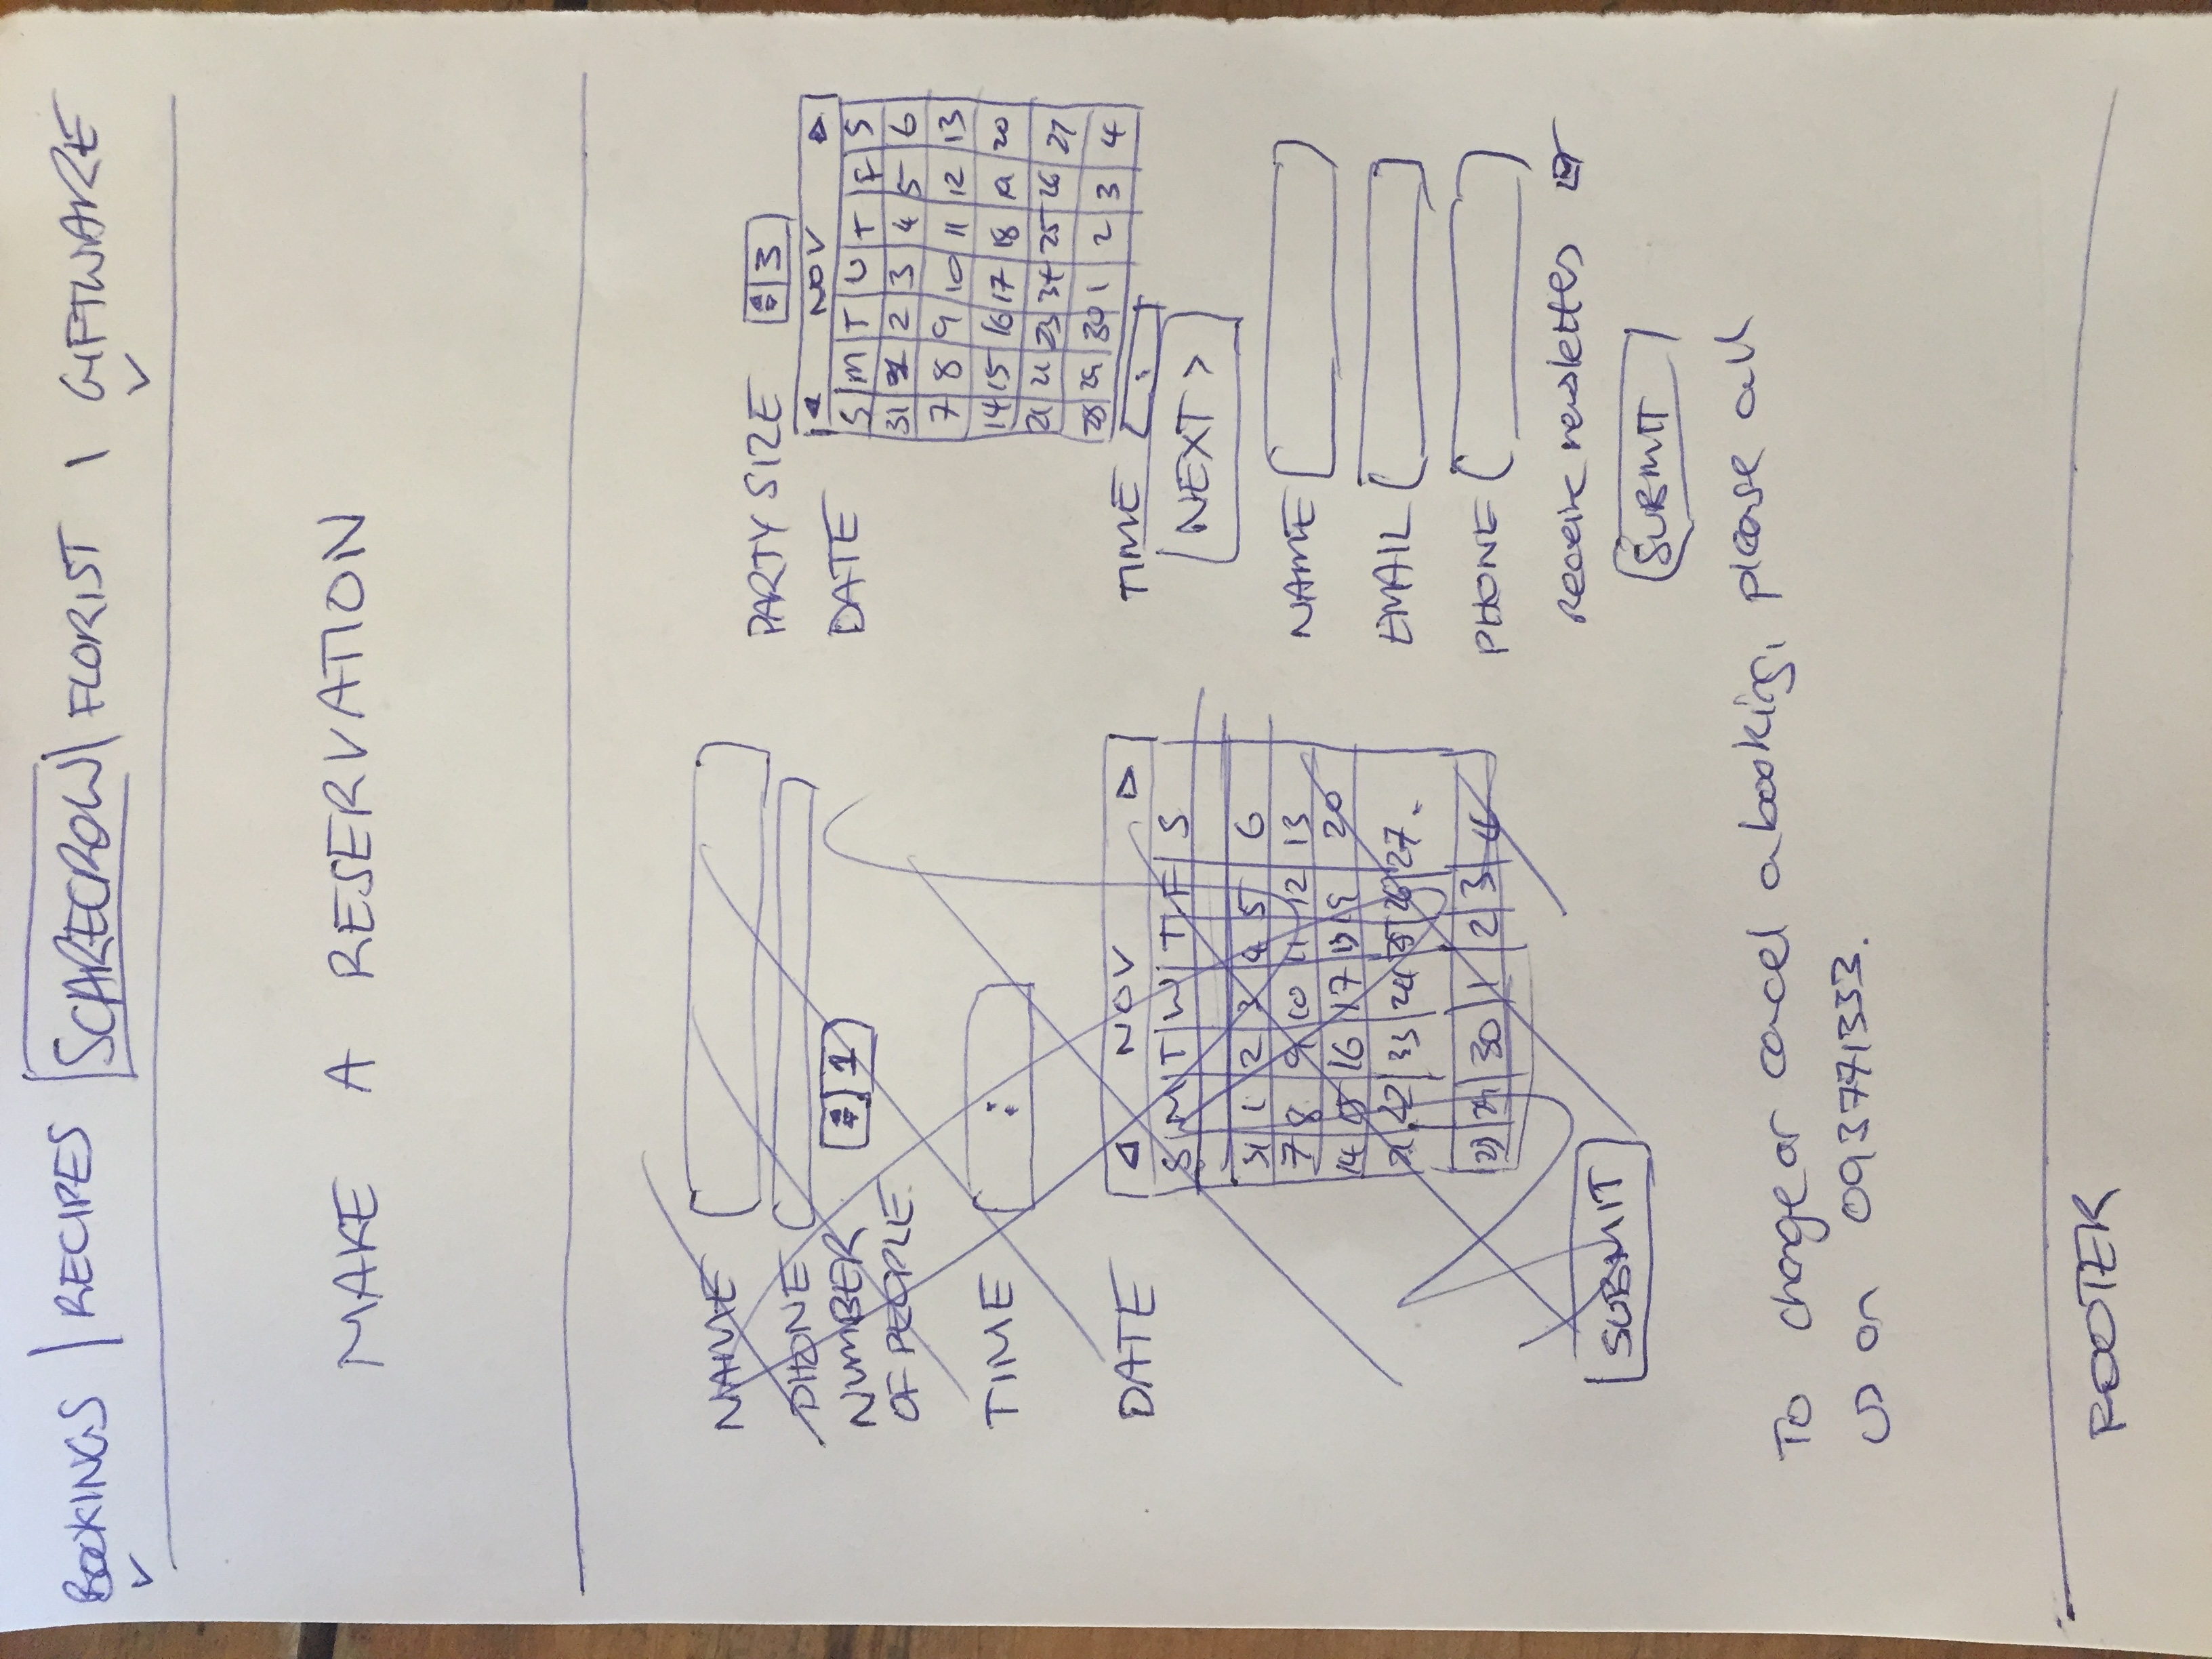 BOOKINGS | RECIPES SCARECROW | FLORIST | GIFTWARE
MAKE A RESERVATION
NAME
PHONE
NUMBER 1
OF PEOPLE
TIME :
DATE NOV
S M T W T F S
31 1 2 3 4 5 6
7 8 9 10 11 12 13
14 15 16 17 18 19 20
21 22 23 24 25 26 27
28 29 30 1 2 3 4
SUBMIT
PARTY SIZE 3
DATE NOV
S M T W T F S
31 1 2 3 4 5 6
7 8 9 10 11 12 13
14 15 16 17 18 19 20
21 22 23 24 25 26 27
28 29 30 1 2 3 4
TIME :
NEXT >
NAME
EMAIL
PHONE
Receive newsletters
SUBMIT
To change or cancel a booking, please call
us on 093771333.
FOOTER